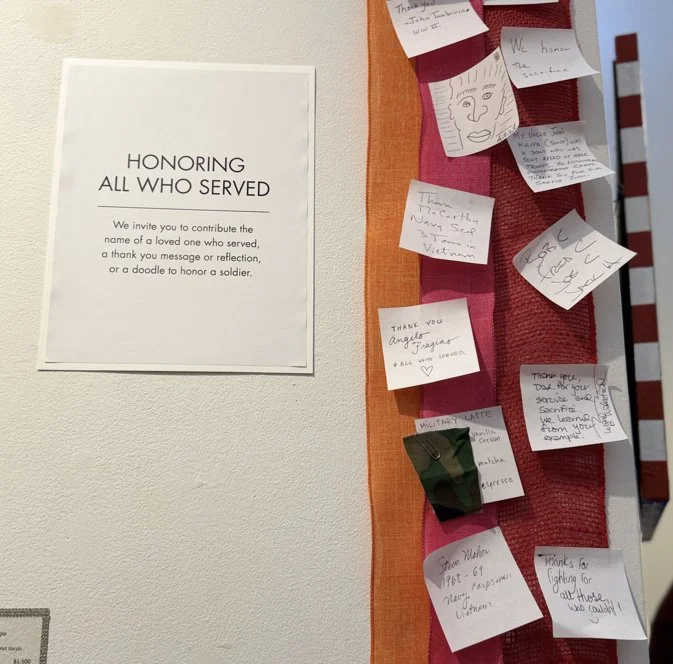 HONORING
ALL WHO SERVED
We invite you to contribute the
name of a loved one who served,
a thank you message or reflection,
or a doodle to honor a soldier.
Thank you
-John
WW II
We honor
the
sacrifice
MY UNCLE JOHN
WAS
A SCOUT WHO WAS
SENT AHEAD OF OTHER
TROOPS. HE
THANK YOU FOR OUR
McCarthy
Navy Seal
3 Tours in
Vietnam
THANK YOU
Angelo
Fragias
+ ALL WHO SERVED
Thank you,
Dad for your
service and
Sacrifice
We learned
from your
example.
MILITARY LATTE
vanilla
cream
matcha
espresso
Steve
1968-69
Navy Corpsman
Vietnam
Thanks for
fighting for
all those
who couldn't!
$1,500